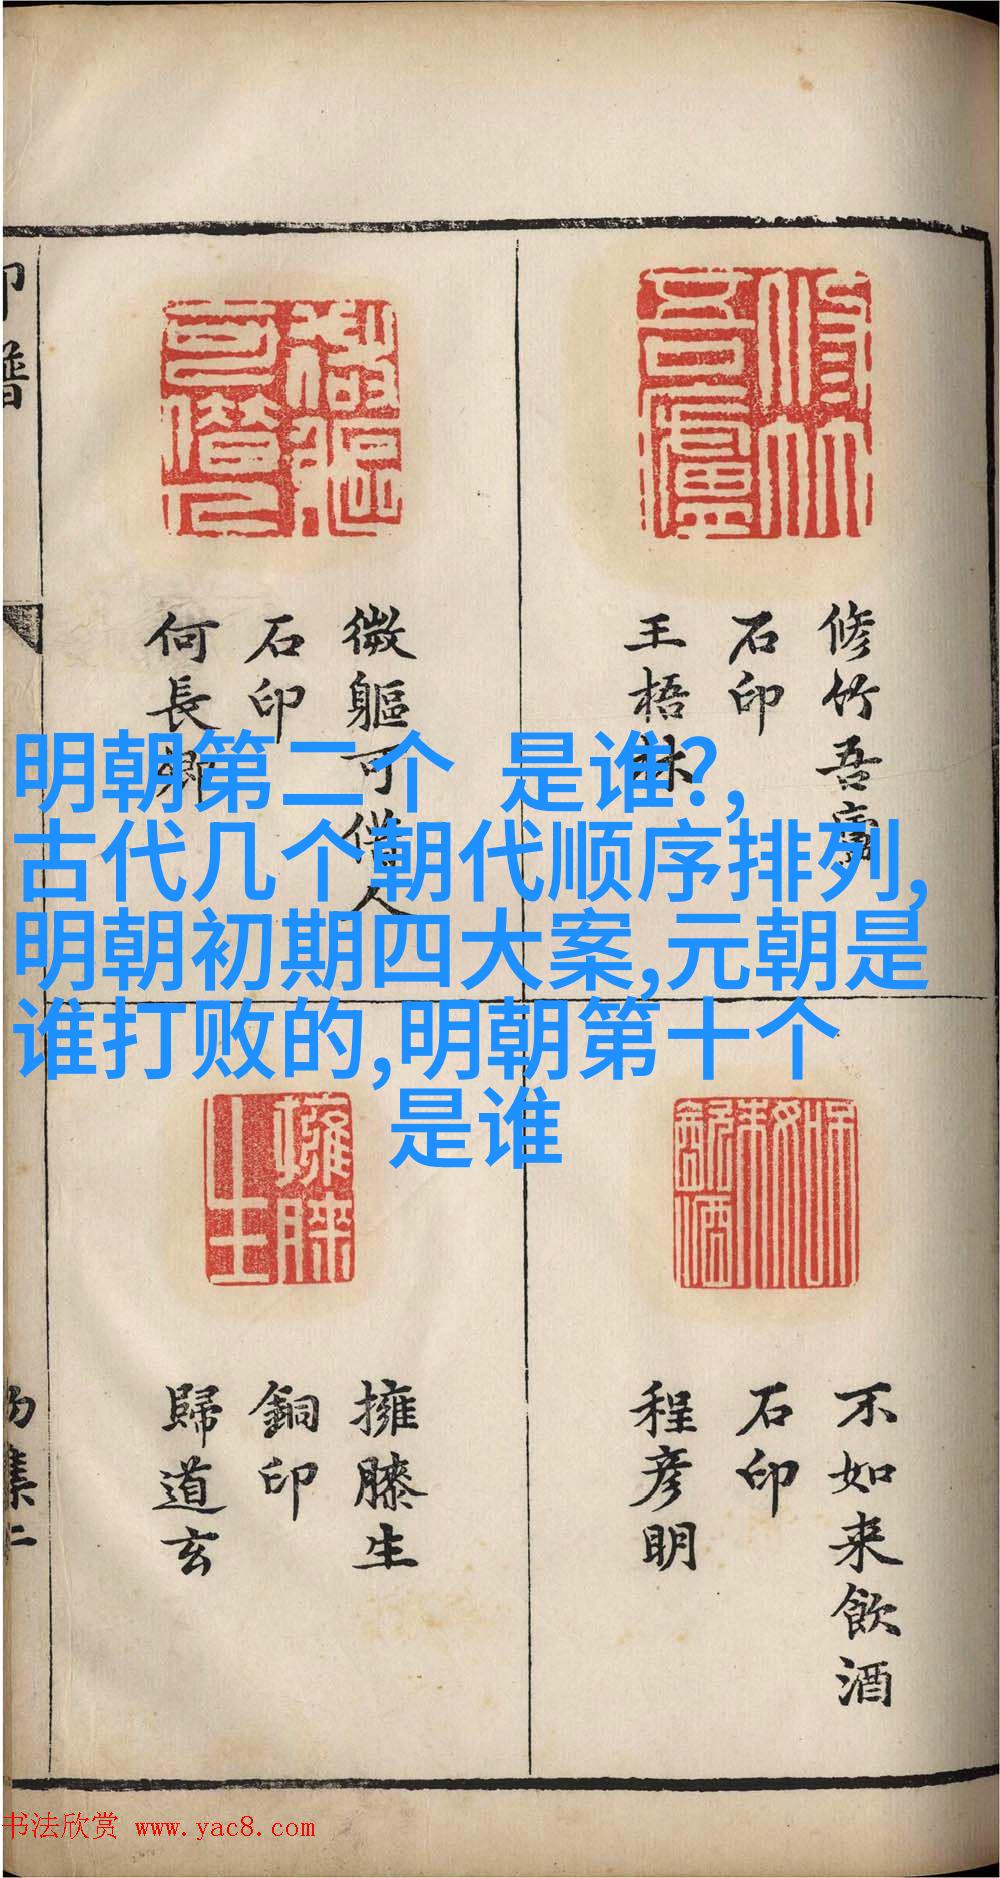 明朝第二个 是谁?,
古代几个朝代顺序排列,
明朝初期四大案,元朝是
谁打败的,明朝第十个
是谁
修竹吾廬
石印
王梧林
微軀可借人
石印
何長卿
不如来飲酒
石印
程彦明
擁膝生
銅印
歸道玄
印譜
书法欣赏 www.yac8.com